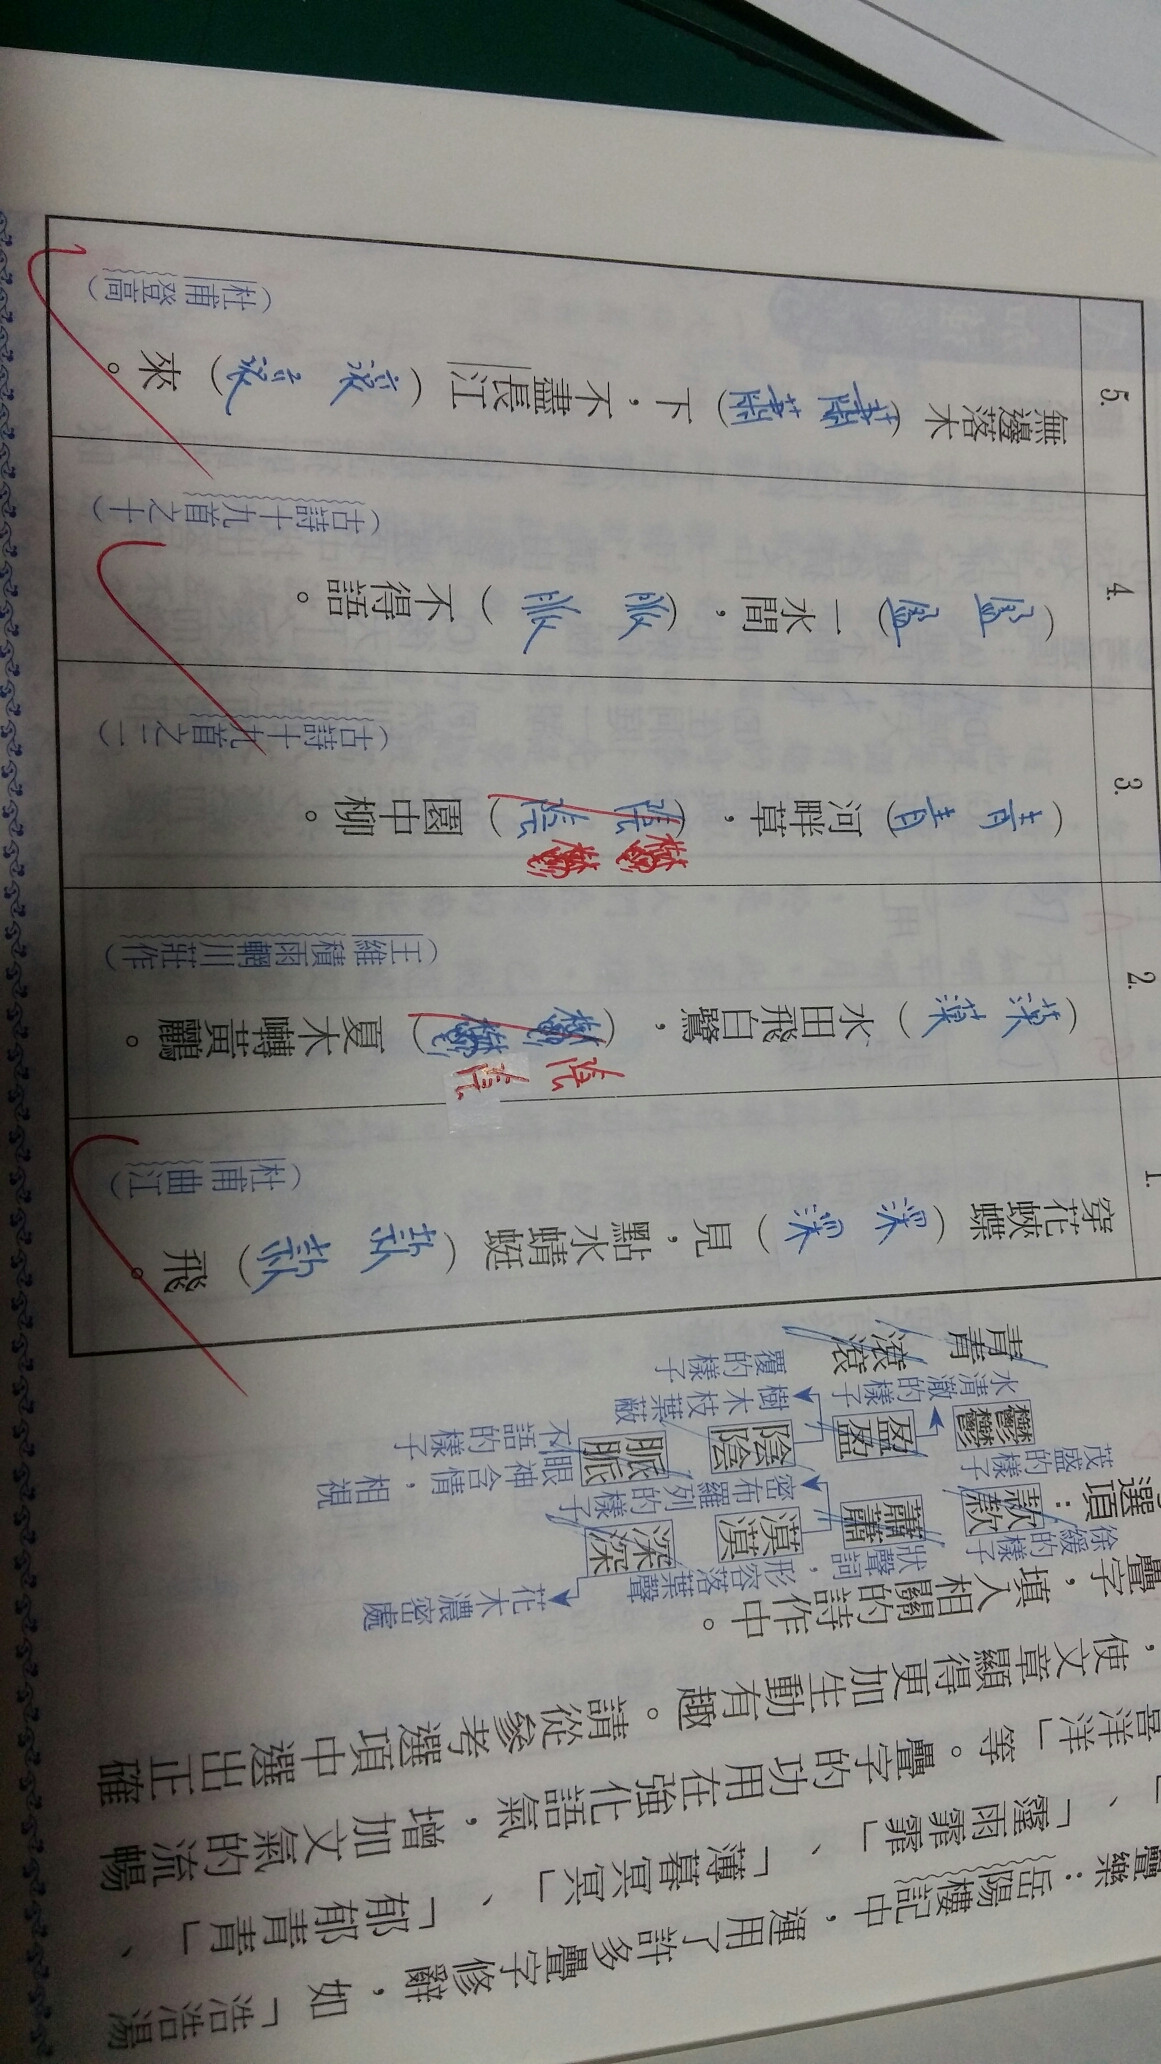 疊樂：岳陽樓記中，運用了許多疊字修辭，如「浩浩湯
」、「霪雨霏霏」、「薄暮冥冥」、「郁郁青青」、「
喜洋洋」等。疊字的功用在強化語氣，增加文氣的流暢
，使文章顯得更加生動有趣。請從參考選項中選出正確
疊字，填入相關的詩作中。
花木濃密處
徐緩的樣子
狀聲詞，形容落葉聲
選項：款款 蕭蕭 漠漠 深深
密布羅列的樣子
茂盛的樣子
眼神含情，相視
不語的樣子
鬱鬱 盈盈 陰陰 脈脈
水清澈的樣子
樹木枝葉蔽
覆的樣子
青青 滾滾
1.
穿花蛺蝶（深深）見，點水蜻蜓（款款）飛。
（杜甫曲江）
2.
（漠漠）水田飛白鷺，（鬱鬱）夏木囀黃鸝。
陰陰
（王維積雨輞川莊作）
3.
（青青）河畔草，（陰陰）園中柳。
鬱鬱
（古詩十九首之二）
4.
（盈盈）一水間，（脈脈）不得語。
（古詩十九首之十）
5.
無邊落木（蕭蕭）下，不盡長江（滾滾）來。
（杜甫登高）